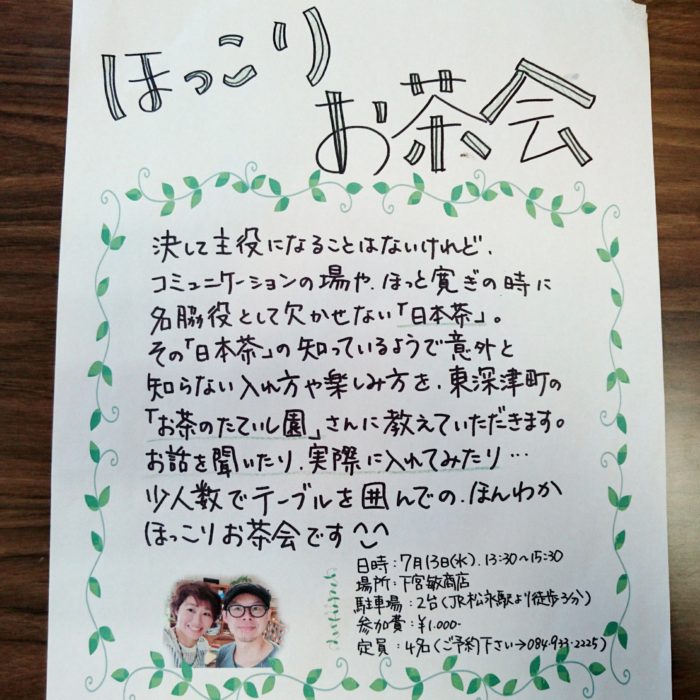 ほっこり
お茶会
決して主役になることはないけれど、
コミュニケーションの場や、ほっと寛ぎの時に
名脇役として欠かせない「日本茶」。
その「日本茶」の知っているようで意外と
知らない入れ方や楽しみ方を、東深津町の
「お茶のたていし園」さんに教えていただきます。
お話を聞いたり、実際に入れてみたり…
少人数でテーブルを囲んでの、ほんわか
ほっこりお茶会です^^
日時：7月13日(水)、13:30〜15:30
場所：下宮敏商店
駐車場：2台(JR松永駅より徒歩3分)
参加費：¥1.000-
定員：4名(ご予約下さい→084-933-2225)